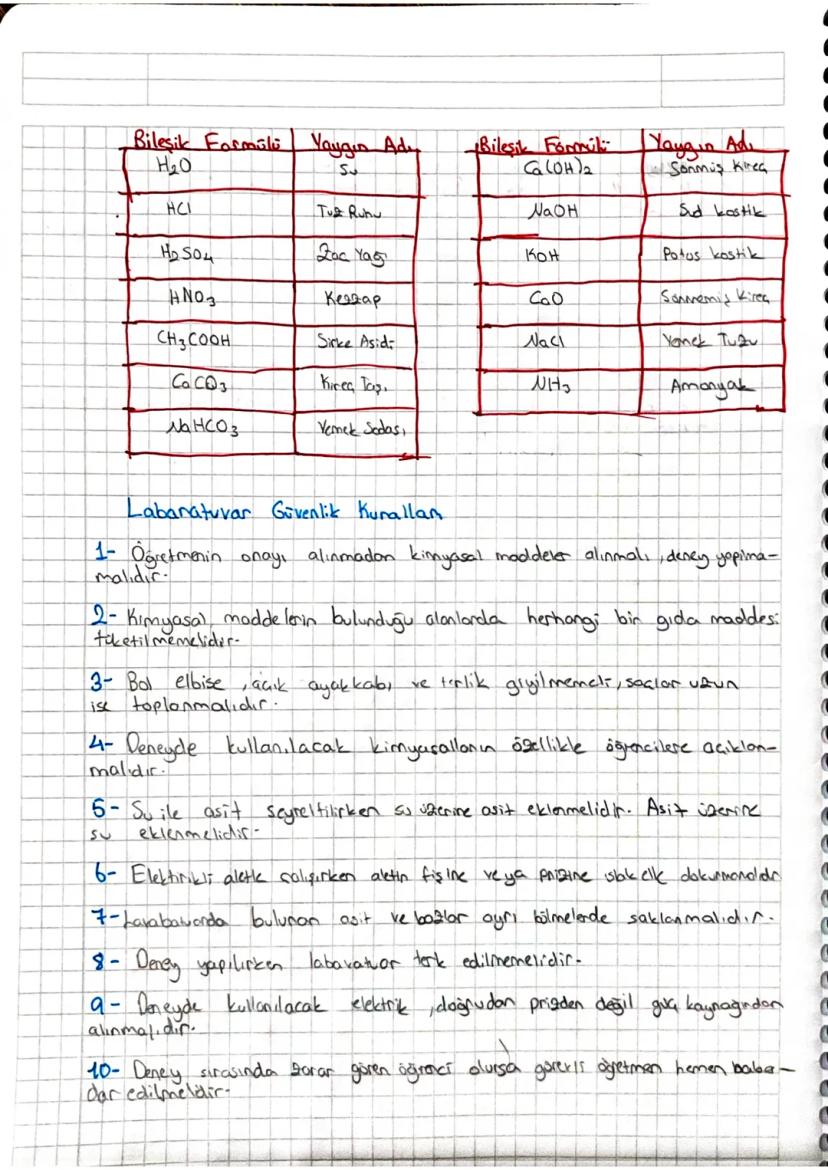 Bileşik Formülü Yaygın Adı
H2O Su
HCl Tuz Ruhu
H2SO4 Zac Yağı
HNO3 Kezzap
CH3COOH Sirke Asidi
CaCO3 Kireç Taşı
NaHCO3 Yemek Sodası
Bileşik Formülü Yaygın Adı
Ca(OH)2 Sönmüş Kireç
NaOH Sud kostik
KOH Potas kostik
CaO Sönmemiş Kireç
NaCl Yemek Tuzu
NH3 Amonyak
Labaratuvar Güvenlik Kuralları
1- Öğretmenin onayı alınmadan kimyasal maddeler alınmalı, deney yapılma-
malıdır.
2- Kimyasal maddelerin bulunduğu alanlarda herhangi bir gıda maddesi
tüketilmemelidir.
3- Bol elbise, açık ayakkabı ve terlik giyilmemeli, saçlar uzun
ise toplanmalıdır.
4- Deneyde kullanılacak kimyasalların özellikle öğrencilere açıklan-
malıdır.
5- Su ile asit seyreltilirken su üzerine asit eklenmelidir. Asit üzerine
su eklenmelidir.
6- Elektirikli aletle çalışırken aletin fişine veya prizine ıslak elle dokunmamalıdır
7- Lavabatuvarda bulunan asit ve bazlar ayrı bölmelerde saklanmalıdır.
8- Deney yapılırken labavatuvar terk edilmemelidir.
9- Deneyde kullanılacak elektrik, doğrudan prizden değil güç kaynağından
alınmalıdır.
10- Deney sırasında zarar gören öğrenci olursa görevli öğetmen hemen haber-
dar edilmeldir.